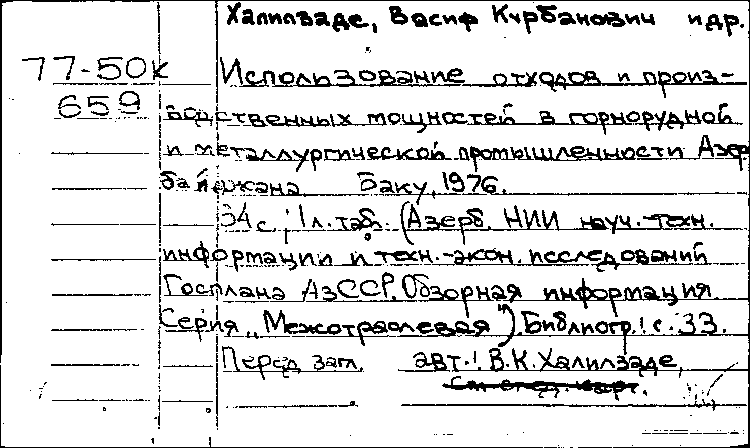 Халилзаде, Васиф Курбанович и др.
77-50к Использование отходов и произ-
659 водственных мощностей в горнорудной
и металлургической промышленности Азер
байджана Баку, 1976.
34 с.; 1 л. табл. (Азерб. НИИ науч.-техн.
информации и техн.-экон. исследований
Госплана АзССР. Обзорная информация
Серия „Межотраслевая"). Библиогр.: с. 33.
Перед загл. авт.: В.К. Халилзаде,
См. след. карт.